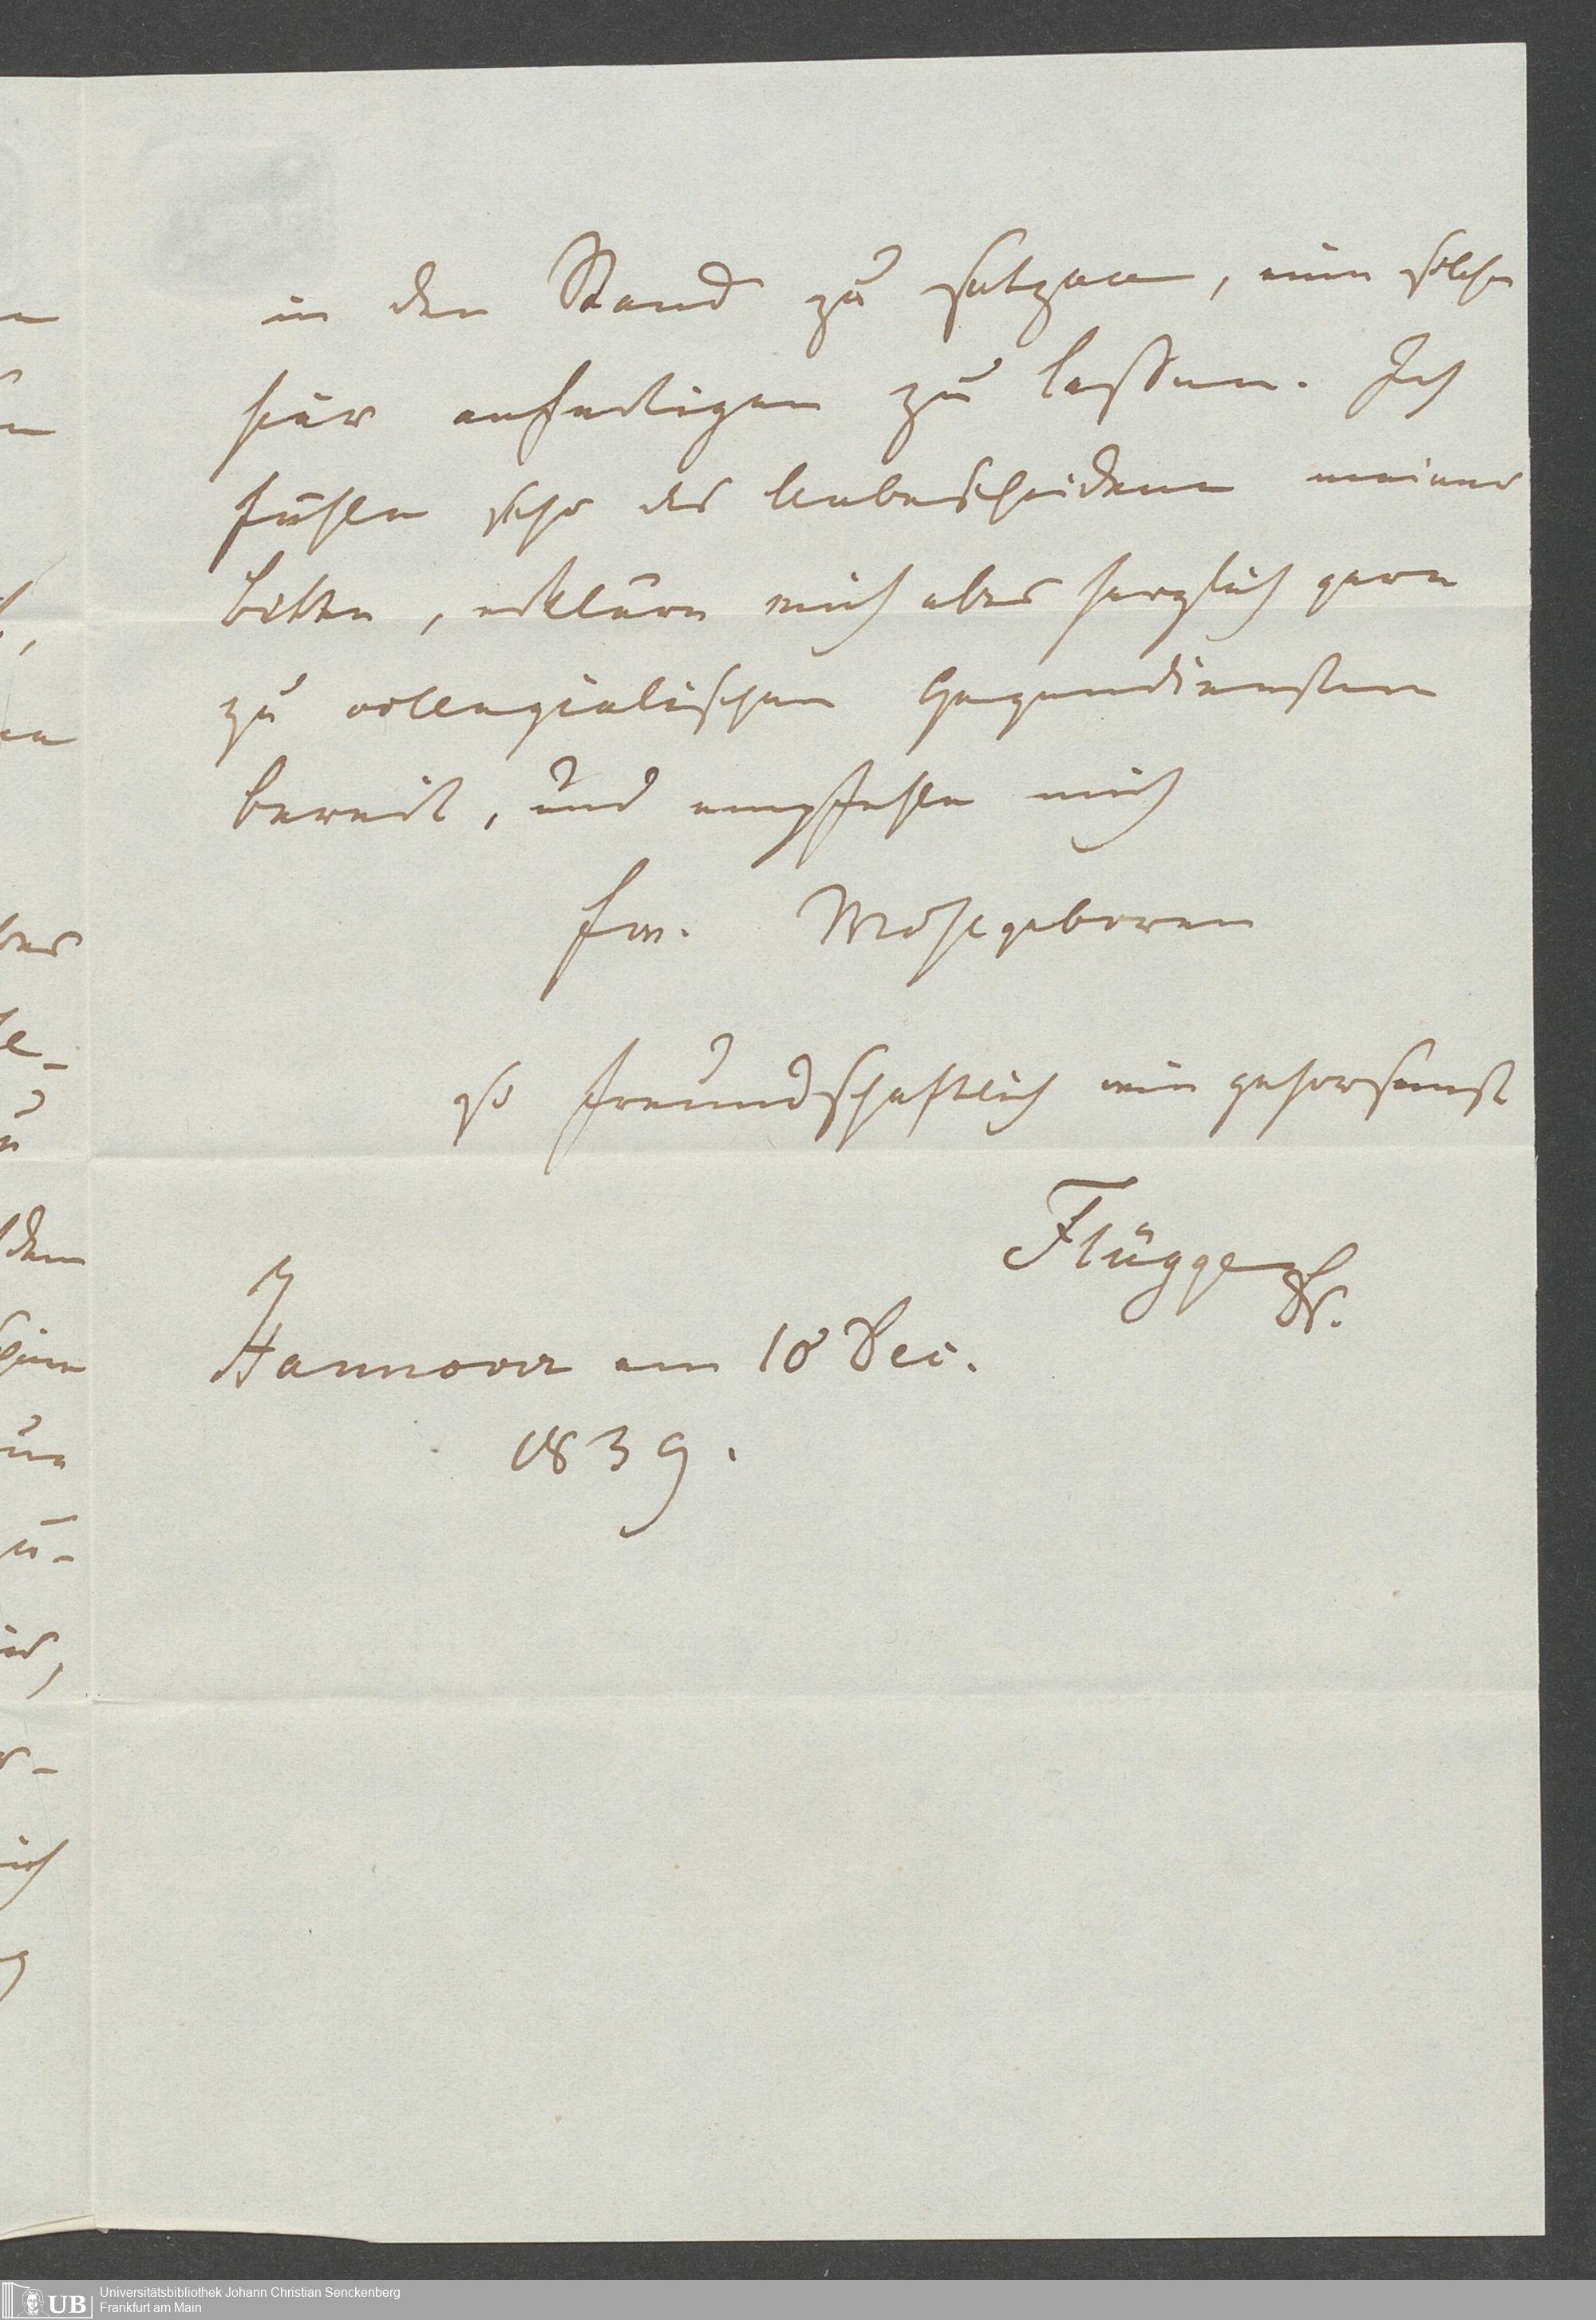 in den Stand zu setzen, eine solche
hier anfertigen zu lassen. Ich
fühle sehr das Unbescheidene meiner
Bitte, erkläre mich aber herzlich gern
zu collegialischen Gegendiensten
bereit, und empfehle mich
Ew. Wohlgeboren
so freundschaftlich wie gehorsamst
Flügge Dr.
Hannover am 18 Dec.
1839.
UB Universitätsbibliothek Johann Christian Senckenberg
Frankfurt am Main